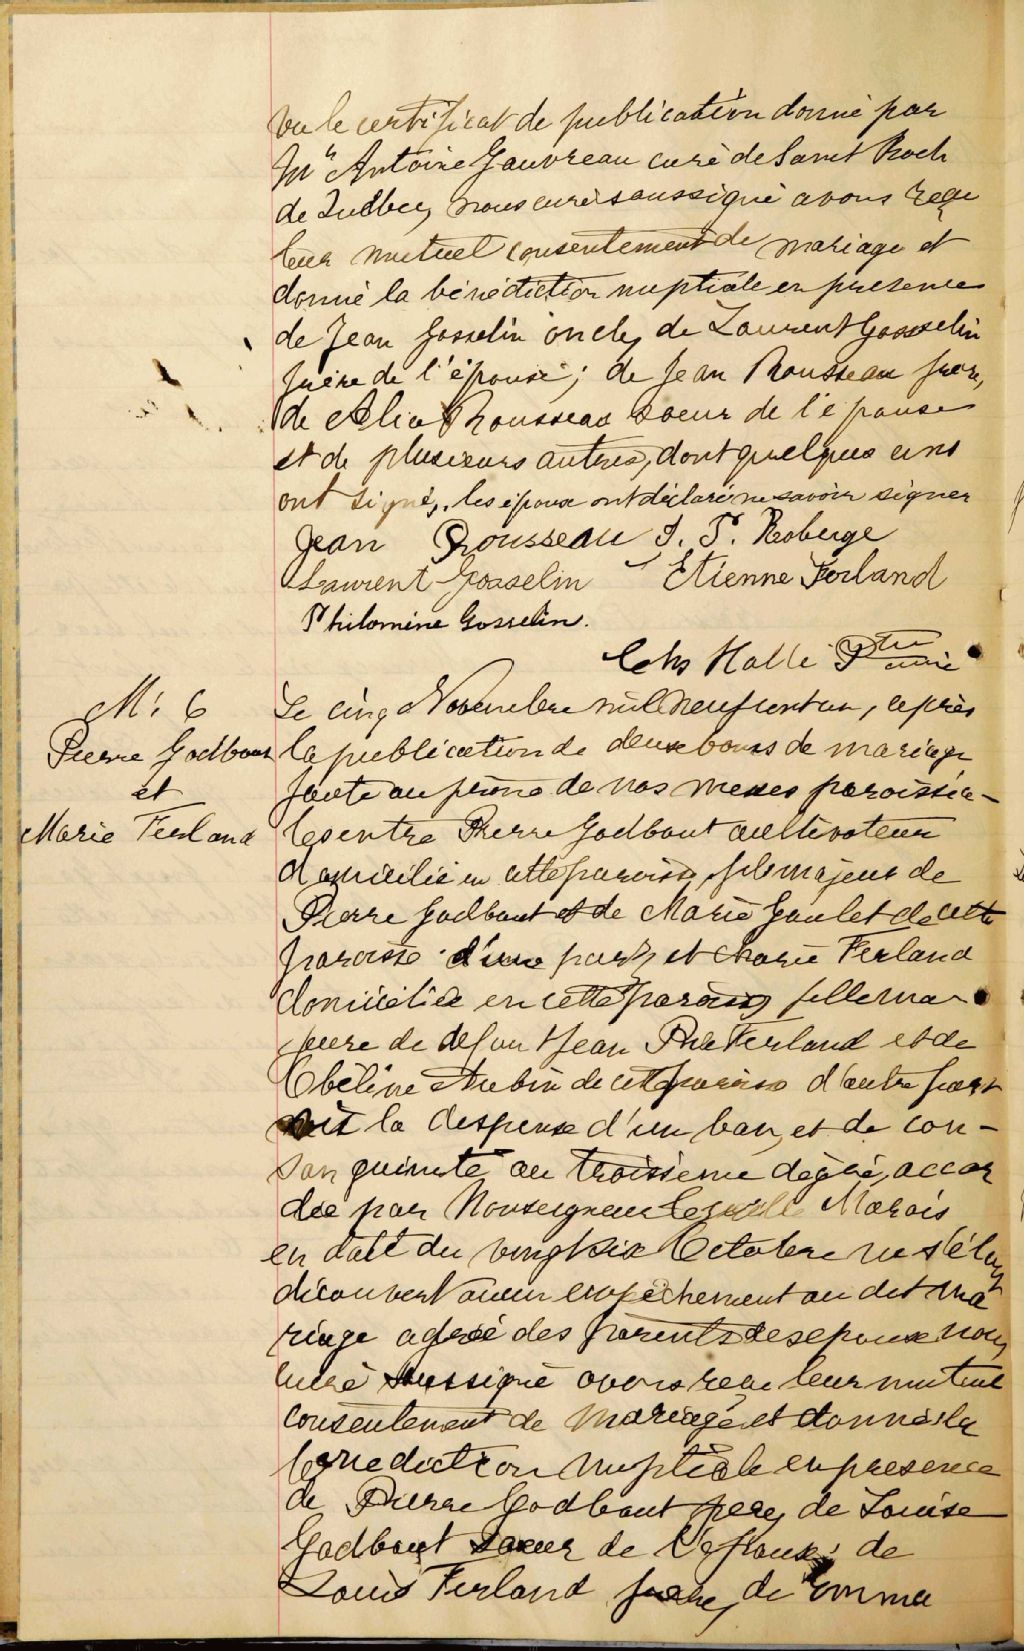 vu le certificat de publication donné par
Mr Antoine Gauvreau curé de Saint Roch
de Québec, nous curé soussigné avons reçu
leur mutuel consentement de mariage et
donné la bénédiction nuptiale en presence
de Jean Gosselin oncle, de Laurent Gosselin
frère de l'épouse; de Jean Rousseau frère,
de Rousseau soeur de l'épouse
et de plusieurs autres, dont quelques uns
ont signé, les époux ont déclaré ne savoir signer
Jean Rousseau J. P. Roberge
Laurent Gosselin Etienne Ferland
Philomène Gosselin.
Chs Hallé Ptre curé
M. 6
Pierre Godbout
et
Marie Ferland
Le cinq Novembre mil neuf cent un, après
la publication de deux bans de mariage
faite au prône de nos messes paroissia-
les entre Pierre Godbout cultivateur
domicilié en cette paroisse, fils majeur de
Pierre Godbout et de Marie Goulet de cette
paroisse d'une part, et Marie Ferland
domiciliée en cette paroisse fille ma-
jeure de defunt Jean Bte Ferland et de
Obéline Aubin de cette paroisse d'autre part
vu la dispense d'un ban, et de con-
sanguinité au troisième dégré, accor
dée par Monseigneur Marois
en date du vingt six Octobre ne s'étant
découvert aucun empêchement au dit ma
riage agréé des parents des epoux nous
curé soussigné avons reçu leur mutuel
consentement de mariage et donné la
benediction nuptiale en presence
de Pierre Godbout père, de Louise
Godbout soeur de l'époux; de
Louis Ferland frère, de Emma